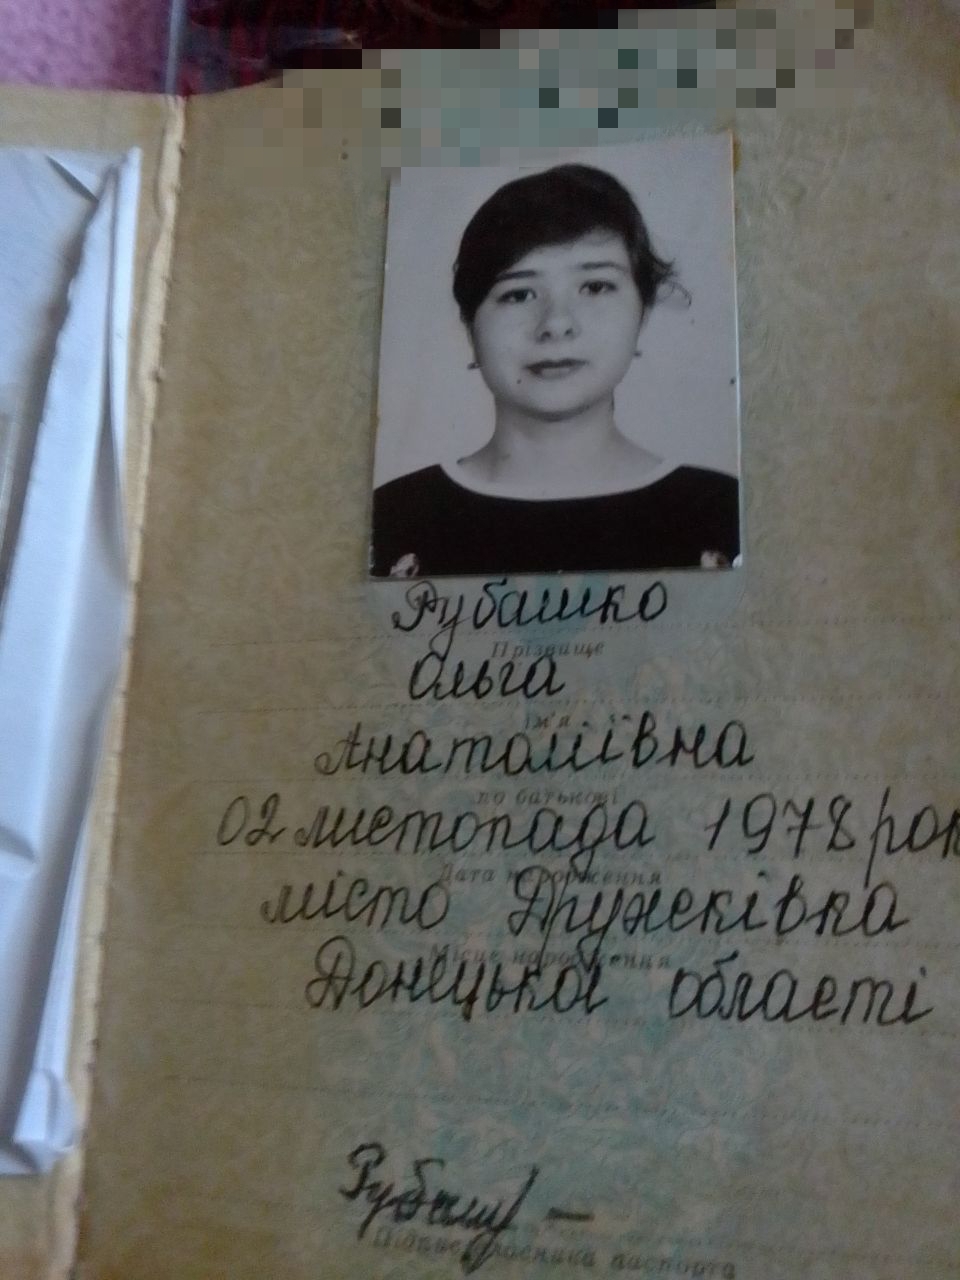 Рубашко
Прізвище
Ольга
Ім'я
Анатоліївна
по батькові
02 листопада 1978 рок
Дата народження
місто Дружківка
Місце народження
Донецької області
Рубаш
Підпис власника паспорта